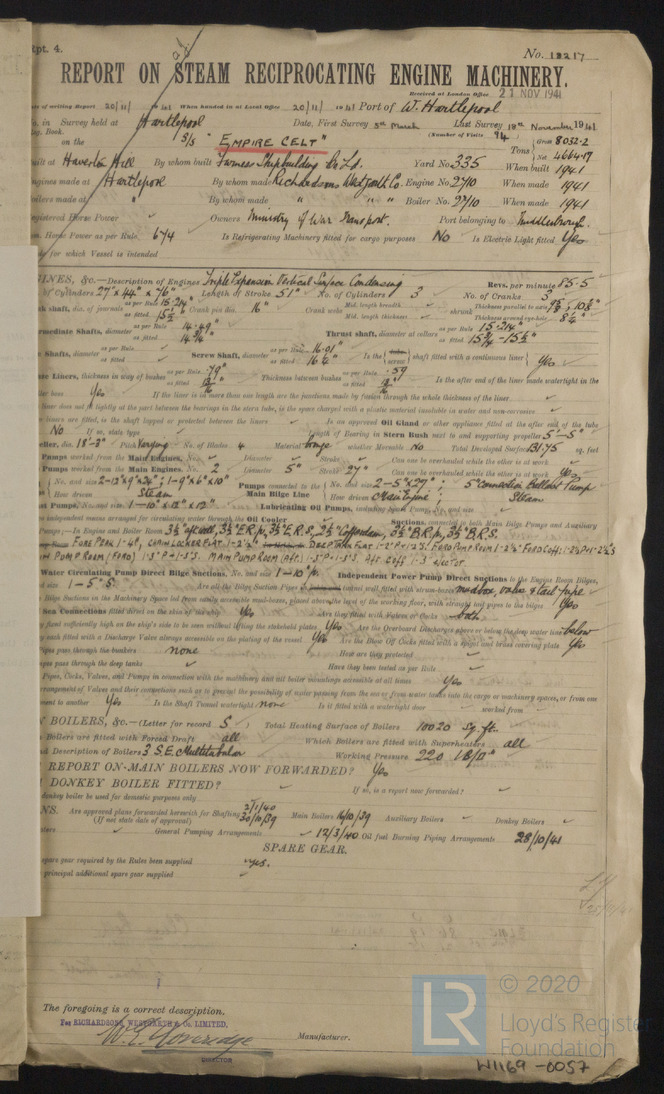 Rpt. 4.
No. 18217
REPORT ON STEAM RECIPROCATING ENGINE MACHINERY.
Received at London Office 21 NOV 1941
of writing Report 20/11/1941 When handed in at Local Office 20/11/1941 Port of W. Hartlepool
No. in Survey held at Hartlepool Date, First Survey 5th March Last Survey 18th November 1941
Book. (Number of Visits 94)
on the S/S "EMPIRE CELT" Tons Gross 8032.2 Net 4664.17
built at Haverton Hill By whom built Furness Shipbuilding Co. Ld. Yard No. 335 When built 1941
Engines made at Hartlepool By whom made Richardsons Westgarth Co. Engine No. 2710 When made 1941
Boilers made at " By whom made " " Boiler No. 2710 When made 1941
Registered Horse Power Owners Ministry of War Transport. Port belonging to Middlesbrough.
Nom. Horse Power as per Rule 674 Is Refrigerating Machinery fitted for cargo purposes No Is Electric Light fitted Yes
for which Vessel is intended
ENGINES, &c.—Description of Engines Triple Expansion Vertical Surface Condensing Revs. per minute 85.5
of Cylinders 27" x 44" x 76" Length of Stroke 51" No. of Cylinders 3 No. of Cranks 3
shaft, dia. of journals as per Rule 15.214" as fitted Crank pin dia. 16" Crank webs Mid. length breadth Mid. length thickness shrunk Thickness parallel to axis Thickness around eye-hole
Intermediate Shafts, diameter as per Rule 14.49" as fitted 14 3/4" Thrust shaft, diameter at collars as per Rule 15.214" as fitted
Shafts, diameter as per Rule as fitted Screw Shaft, diameter as per Rule 16.01" as fitted 16 1/4" Is the shaft fitted with a continuous liner Yes
Liners, thickness in way of bushes as per Rule .79" as fitted Thickness between bushes as per Rule .59 as fitted Is the after end of the liner made watertight in the
boss Yes If the liner is in more than one length are the junctions made by fusion through the whole thickness of the liner
liner does not fit tightly at the part between the bearings in the stern tube, is the space charged with a plastic material insoluble in water and non-corrosive
liners are fitted, is the shaft lapped or protected between the liners Is an approved Oil Gland or other appliance fitted at the after end of the tube
No If so, state type Length of Bearing in Stern Bush next to and supporting propeller 5'-5"
Propeller, dia. 18'-3" Pitch Varying No. of Blades 4 Material bronze whether Moveable No Total Developed Surface 131.75 sq. feet
Pumps worked from the Main Engines, No. Diameter Stroke Can one be overhauled while the other is at work
Pumps worked from the Main Engines, No. 2 Diameter 5" Stroke 27" Can one be overhauled while the other is at work Yes
No. and size 2-12"x9"x24"; 1-9"x6"x10" Pumps connected to the Main Bilge Line No. and size 2-5"x27"; 5" Connection Ballast Pump
How driven Steam How driven Main Engine; Steam
Ballast Pumps, No. and size 1-10"x12"x12" Lubricating Oil Pumps, including Spare Pump, No. and size
independent means arranged for circulating water through the Oil Cooler Suctions, connected to both Main Bilge Pumps and Auxiliary
Pumps;—In Engine and Boiler Room 3½" aft well, 3½" E.R.p, 3½" E.R.S, 2½" Cofferdam, 3½" B.R.p, 3½" B.R.S.
FORE PEAK 1-4"p, CHAIN LOCKER FLAT 1-2½"
Water Circulating Pump Direct Bilge Suctions, No. and size 1-10"p. Independent Power Pump Direct Suctions to the Engine Room Bilges,
and size 1-5" S. Are all the Bilge Suction Pipes tunnel well fitted with strum-boxes mudbox, valve & tail pipe
Bilge Suctions in the Machinery Space led from easily accessible mud-boxes, placed above the level of the working floor, with straight tail pipes to the bilges Yes
Sea Connections fitted direct on the skin of the ship Yes Are they fitted with Valves or Cocks both
fixed sufficiently high on the ship's side to be seen without lifting the stokehold plates Yes Are the Overboard Discharges above or below the deep water line below
each fitted with a Discharge Valve always accessible on the plating of the vessel Yes Are the Blow Off Cocks fitted with a spigot and brass covering plate Yes
pipes pass through the bunkers none How are they protected
pipes pass through the deep tanks Have they been tested as per Rule
Pipes, Cocks, Valves, and Pumps in connection with the machinery and all boiler mountings accessible at all times Yes
arrangement of Valves and their connections such as to prevent the possibility of water passing from the sea or from water tanks into the cargo or machinery spaces, or from one
to another Yes Is the Shaft Tunnel watertight none Is it fitted with a watertight door worked from
BOILERS, &c.—(Letter for record S) Total Heating Surface of Boilers 10020 sq. ft.
Boilers are fitted with Forced Draft all Which Boilers are fitted with Superheaters all
and Description of Boilers 3 S.E. Multitubular Working Pressure 220 lb/□"
REPORT ON MAIN BOILERS NOW FORWARDED? Yes
DONKEY BOILER FITTED? If so, is a report now forwarded?
donkey boiler be used for domestic purposes only
Are approved plans forwarded herewith for Shafting 2/1/40 30/10/39 Main Boilers 16/10/39 Auxiliary Boilers Donkey Boilers
(If not state date of approval)
General Pumping Arrangements 12/3/40 Oil fuel Burning Piping Arrangements 28/10/41
SPARE GEAR.
spare gear required by the Rules been supplied yes.
principal additional spare gear supplied
The foregoing is a correct description.
For RICHARDSONS, WESTGARTH & Co. LIMITED,
Manufacturer.
DIRECTOR
LR
© 2020
Lloyd's Register
Foundation
W1169-0057